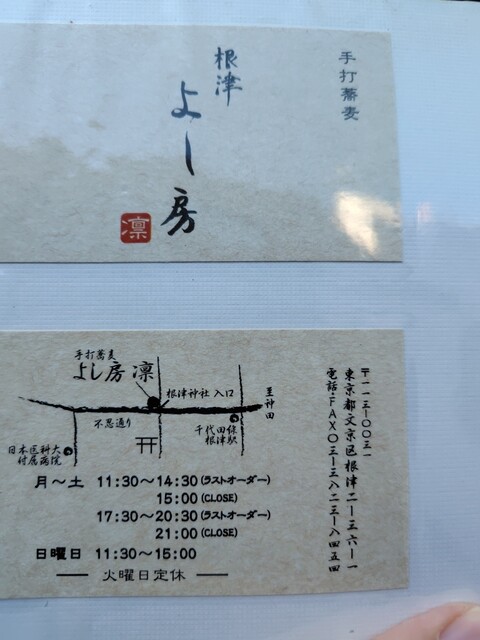 手打蕎麦
根津
よし房
凛
手打蕎麦
よし房 凛
根津神社 入口
至神田
不忍通り
千代田線
根津駅
日本医科大
付属病院
〒一一三-〇〇三一
東京都文京区根津二-三六-一
電話・FAX〇三-三八二三-八四五四
月～土 11:30～14:30(ラストオーダー)
15:00(CLOSE)
17:30～20:30(ラストオーダー)
21:00(CLOSE)
日曜日 11:30～15:00
火曜日定休